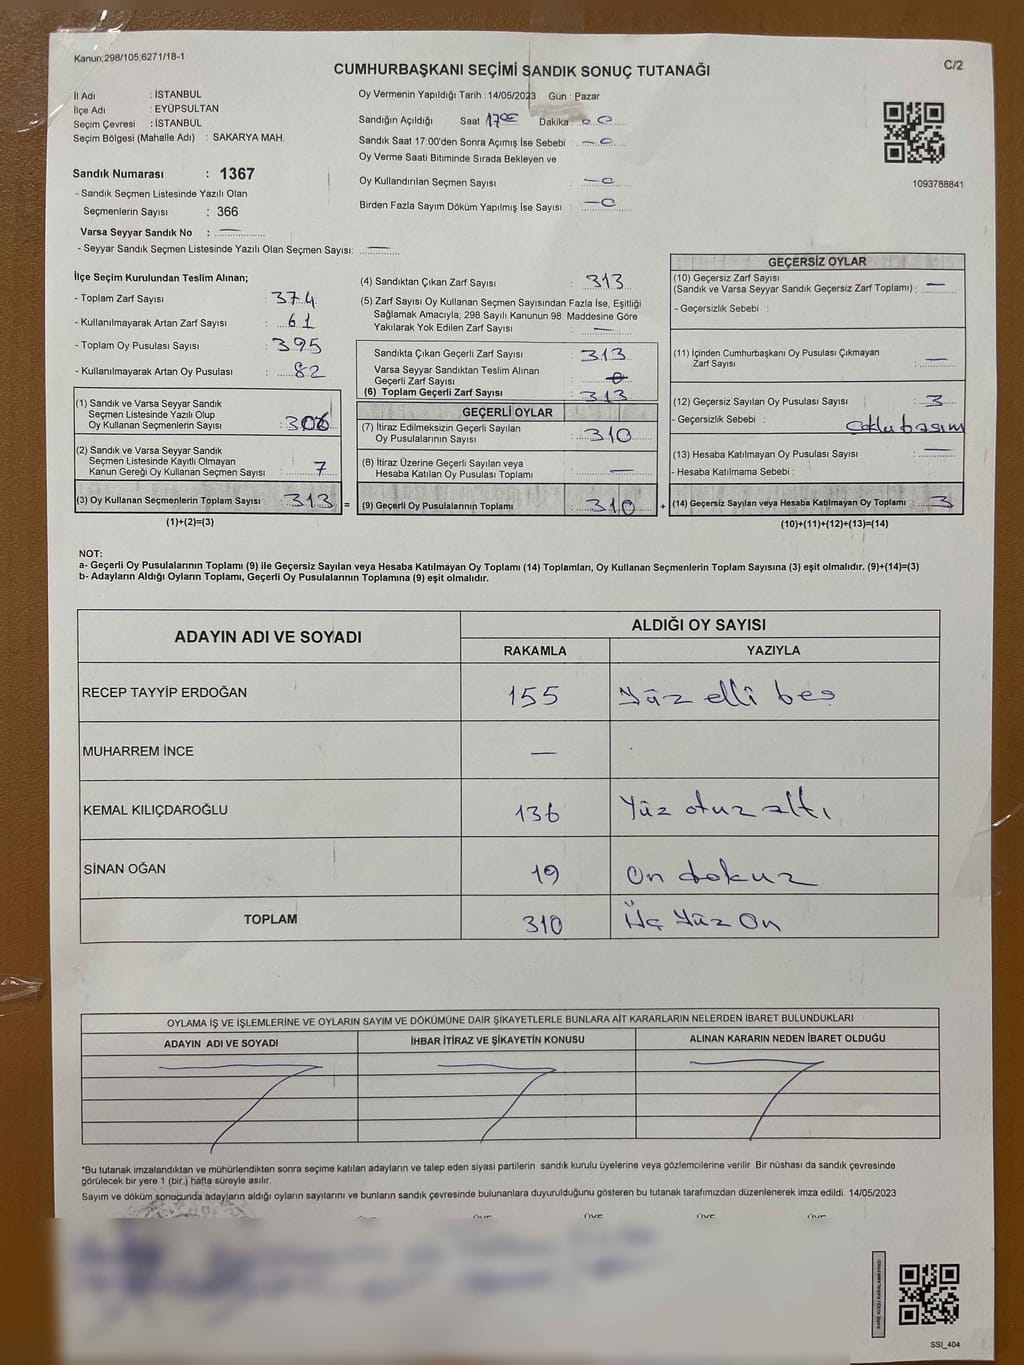 Kanun:298/105,6271/18-1
C/2
CUMHURBAŞKANI SEÇİMİ SANDIK SONUÇ TUTANAĞI
İl Adı : İSTANBUL
İlçe Adı : EYÜPSULTAN
Seçim Çevresi : İSTANBUL
Seçim Bölgesi (Mahalle Adı) : SAKARYA MAH.
Sandık Numarası : 1367
- Sandık Seçmen Listesinde Yazılı Olan
Seçmenlerin Sayısı : 366
Varsa Seyyar Sandık No : —
- Seyyar Sandık Seçmen Listesinde Yazılı Olan Seçmen Sayısı: —
Oy Vermenin Yapıldığı Tarih : 14/05/2023 Gün : Pazar
Sandığın Açıldığı Saat 17 00 Dakika 00
Sandık Saat 17:00'den Sonra Açımış İse Sebebi : — 0
Oy Verme Saati Bitiminde Sırada Bekleyen ve
Oy Kullandırılan Seçmen Sayısı : — 0
Birden Fazla Sayım Döküm Yapılmış İse Sayısı : — 0
1093788841
İlçe Seçim Kurulundan Teslim Alınan;
- Toplam Zarf Sayısı : 374
- Kullanılmayarak Artan Zarf Sayısı : 61
- Toplam Oy Pusulası Sayısı : 395
- Kullanılmayarak Artan Oy Pusulası : 82
(1) Sandık ve Varsa Seyyar Sandık
Seçmen Listesinde Yazılı Olup
Oy Kullanan Seçmenlerin Sayısı : 306
(2) Sandık ve Varsa Seyyar Sandık
Seçmen Listesinde Kayıtlı Olmayan
Kanun Gereği Oy Kullanan Seçmen Sayısı : 7
(3) Oy Kullanan Seçmenlerin Toplam Sayısı : 313 =
(1)+(2)=(3)
(4) Sandıktan Çıkan Zarf Sayısı : 313
(5) Zarf Sayısı Oy Kullanan Seçmen Sayısından Fazla İse, Eşitliği
Sağlamak Amacıyla, 298 Sayılı Kanunun 98. Maddesine Göre
Yakılarak Yok Edilen Zarf Sayısı : —
Sandıkta Çıkan Geçerli Zarf Sayısı : 313
Varsa Seyyar Sandıktan Teslim Alınan
Geçerli Zarf Sayısı : 0
(6) Toplam Geçerli Zarf Sayısı : 313
GEÇERLİ OYLAR
(7) İtiraz Edilmeksizin Geçerli Sayılan
Oy Pusulalarının Sayısı : 310
(8) İtiraz Üzerine Geçerli Sayılan veya
Hesaba Katılan Oy Pusulası Toplamı : —
(9) Geçerli Oy Pusulalarının Toplamı : 310 +
GEÇERSİZ OYLAR
(10) Geçersiz Zarf Sayısı
(Sandık ve Varsa Seyyar Sandık Geçersiz Zarf Toplamı) : —
- Geçersizlik Sebebi :
(11) İçinden Cumhurbaşkanı Oy Pusulası Çıkmayan
Zarf Sayısı : —
(12) Geçersiz Sayılan Oy Pusulası Sayısı : 3
- Geçersizlik Sebebi : Çoklu basım
(13) Hesaba Katılmayan Oy Pusulası Sayısı : —
- Hesaba Katılmama Sebebi :
(14) Geçersiz Sayılan veya Hesaba Katılmayan Oy Toplamı : 3
(10)+(11)+(12)+(13)=(14)
NOT:
a- Geçerli Oy Pusulalarının Toplamı (9) ile Geçersiz Sayılan veya Hesaba Katılmayan Oy Toplamı (14) Toplamları, Oy Kullanan Seçmenlerin Toplam Sayısına (3) eşit olmalıdır. (9)+(14)=(3)
b- Adayların Aldığı Oyların Toplamı, Geçerli Oy Pusulalarının Toplamına (9) eşit olmalıdır.
ADAYIN ADI VE SOYADI ALDIĞI OY SAYISI
RAKAMLA YAZIYLA
RECEP TAYYİP ERDOĞAN 155 Yüz elli beş
MUHARREM İNCE —
KEMAL KILIÇDAROĞLU 136 Yüz otuz altı
SİNAN OĞAN 19 On dokuz
TOPLAM 310 Üç Yüz On
OYLAMA İŞ VE İŞLEMLERİNE VE OYLARIN SAYIM VE DÖKÜMÜNE DAİR ŞİKAYETLERLE BUNLARA AİT KARARLARIN NELERDEN İBARET BULUNDUKLARI
ADAYIN ADI VE SOYADI İHBAR İTİRAZ VE ŞİKAYETİN KONUSU ALINAN KARARIN NEDEN İBARET OLDUĞU
*Bu tutanak imzalandıktan ve mühürlendikten sonra seçime katılan adayların ve talep eden siyasi partilerin sandık kurulu üyelerine veya gözlemcilerine verilir. Bir nüshası da sandık çevresinde
görülecek bir yere 1 (bir.) hafta süreyle asılır.
Sayım ve döküm sonucunda adayların aldığı oyların sayılarını ve bunların sandık çevresinde bulunanlara duyurulduğunu gösteren bu tutanak tarafımızdan düzenlenerek imza edildi. 14/05/2023
SSI_404